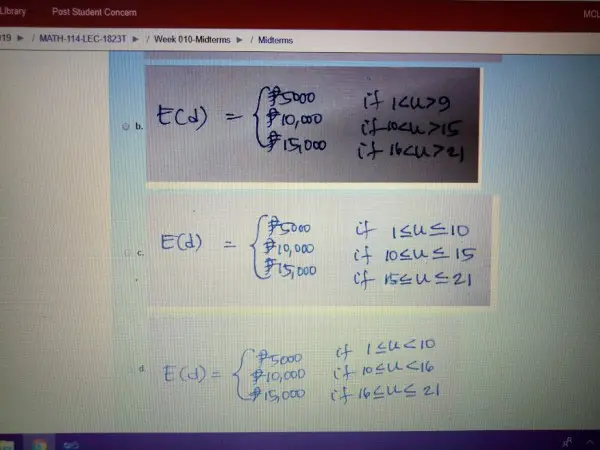 Library Post Student Concern MCL
019 ► / MATH-114-LEC-1823T ► / Week 010-Midterms ► / Midterms
b. E(d) = { ₱5000 if 1<u>9
₱10,000 if 10<u>15
₱15,000 if 16<u>21
c. E(d) = { ₱5000 if 1≤u≤10
₱10,000 if 10≤u≤15
₱15,000 if 15≤u≤21
d. E(d) = { ₱5000 if 1≤u<10
₱10,000 if 10≤u<16
₱15,000 if 16≤u≤21